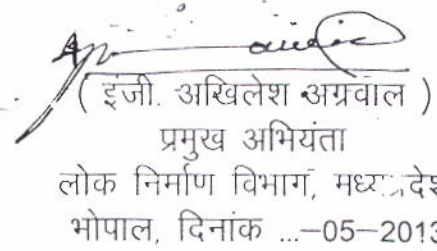 ( इंजी. अखिलेश अग्रवाल )
प्रमुख अभियंता
लोक निर्माण विभाग, मध्यप्रदेश
भोपाल, दिनांक ...-05-2013